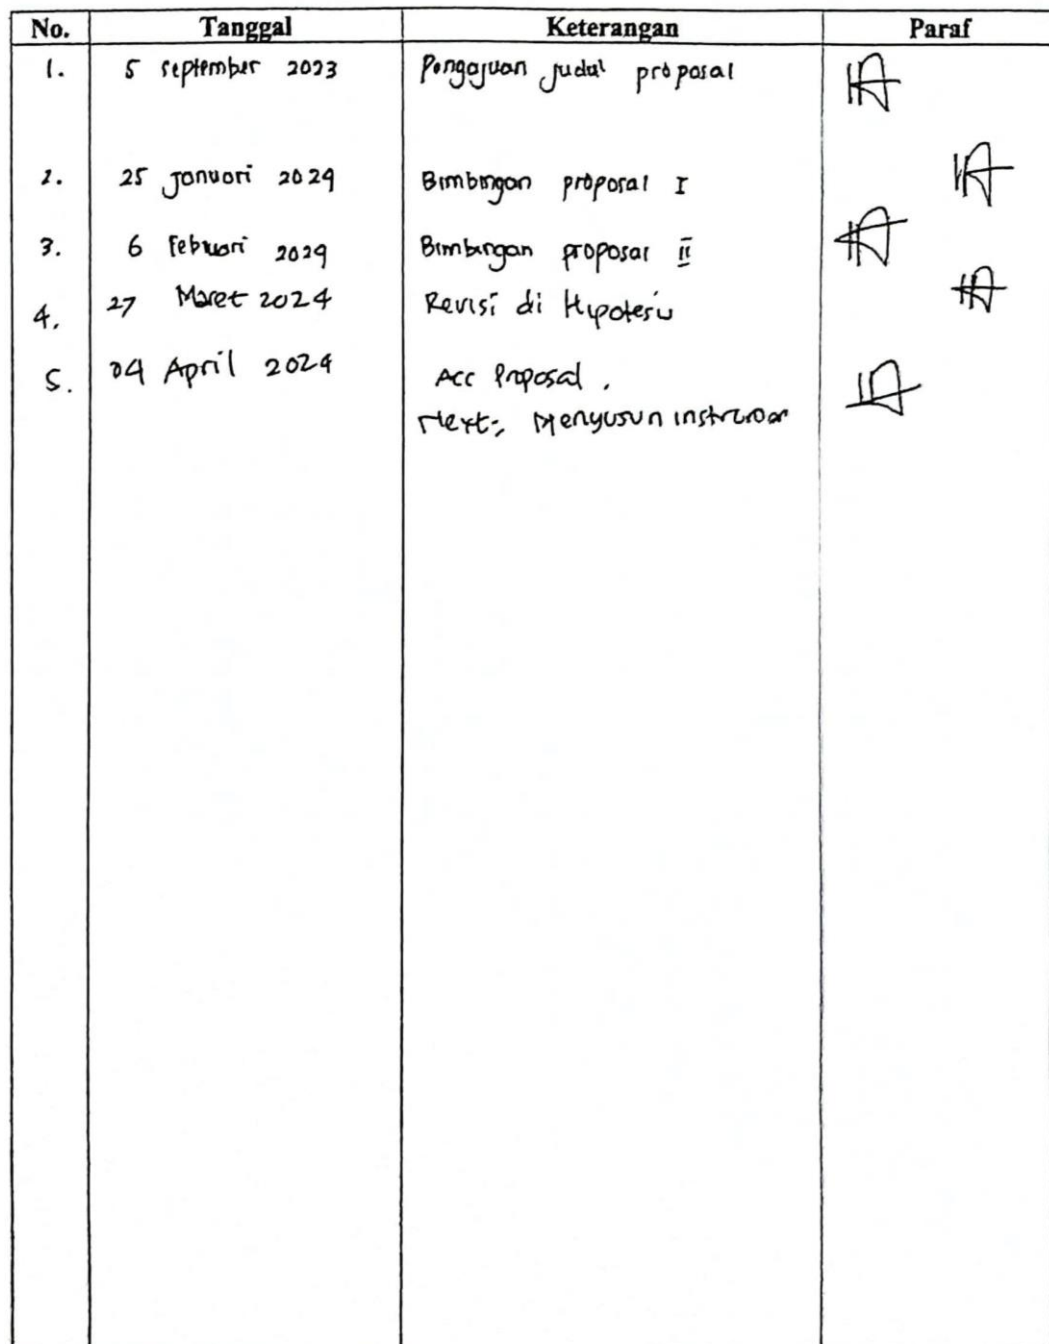 No. Tanggal Keterangan Paraf
1. 5 september 2023 Pengajuan judul proposal
2. 25 Januari 2024 Bimbingan proposal I
3. 6 Februari 2024 Bimbingan proposal II
4. 27 Maret 2024 Revisi di Hipotesis
5. 04 April 2024 Acc Proposal.
Next: Menyusun